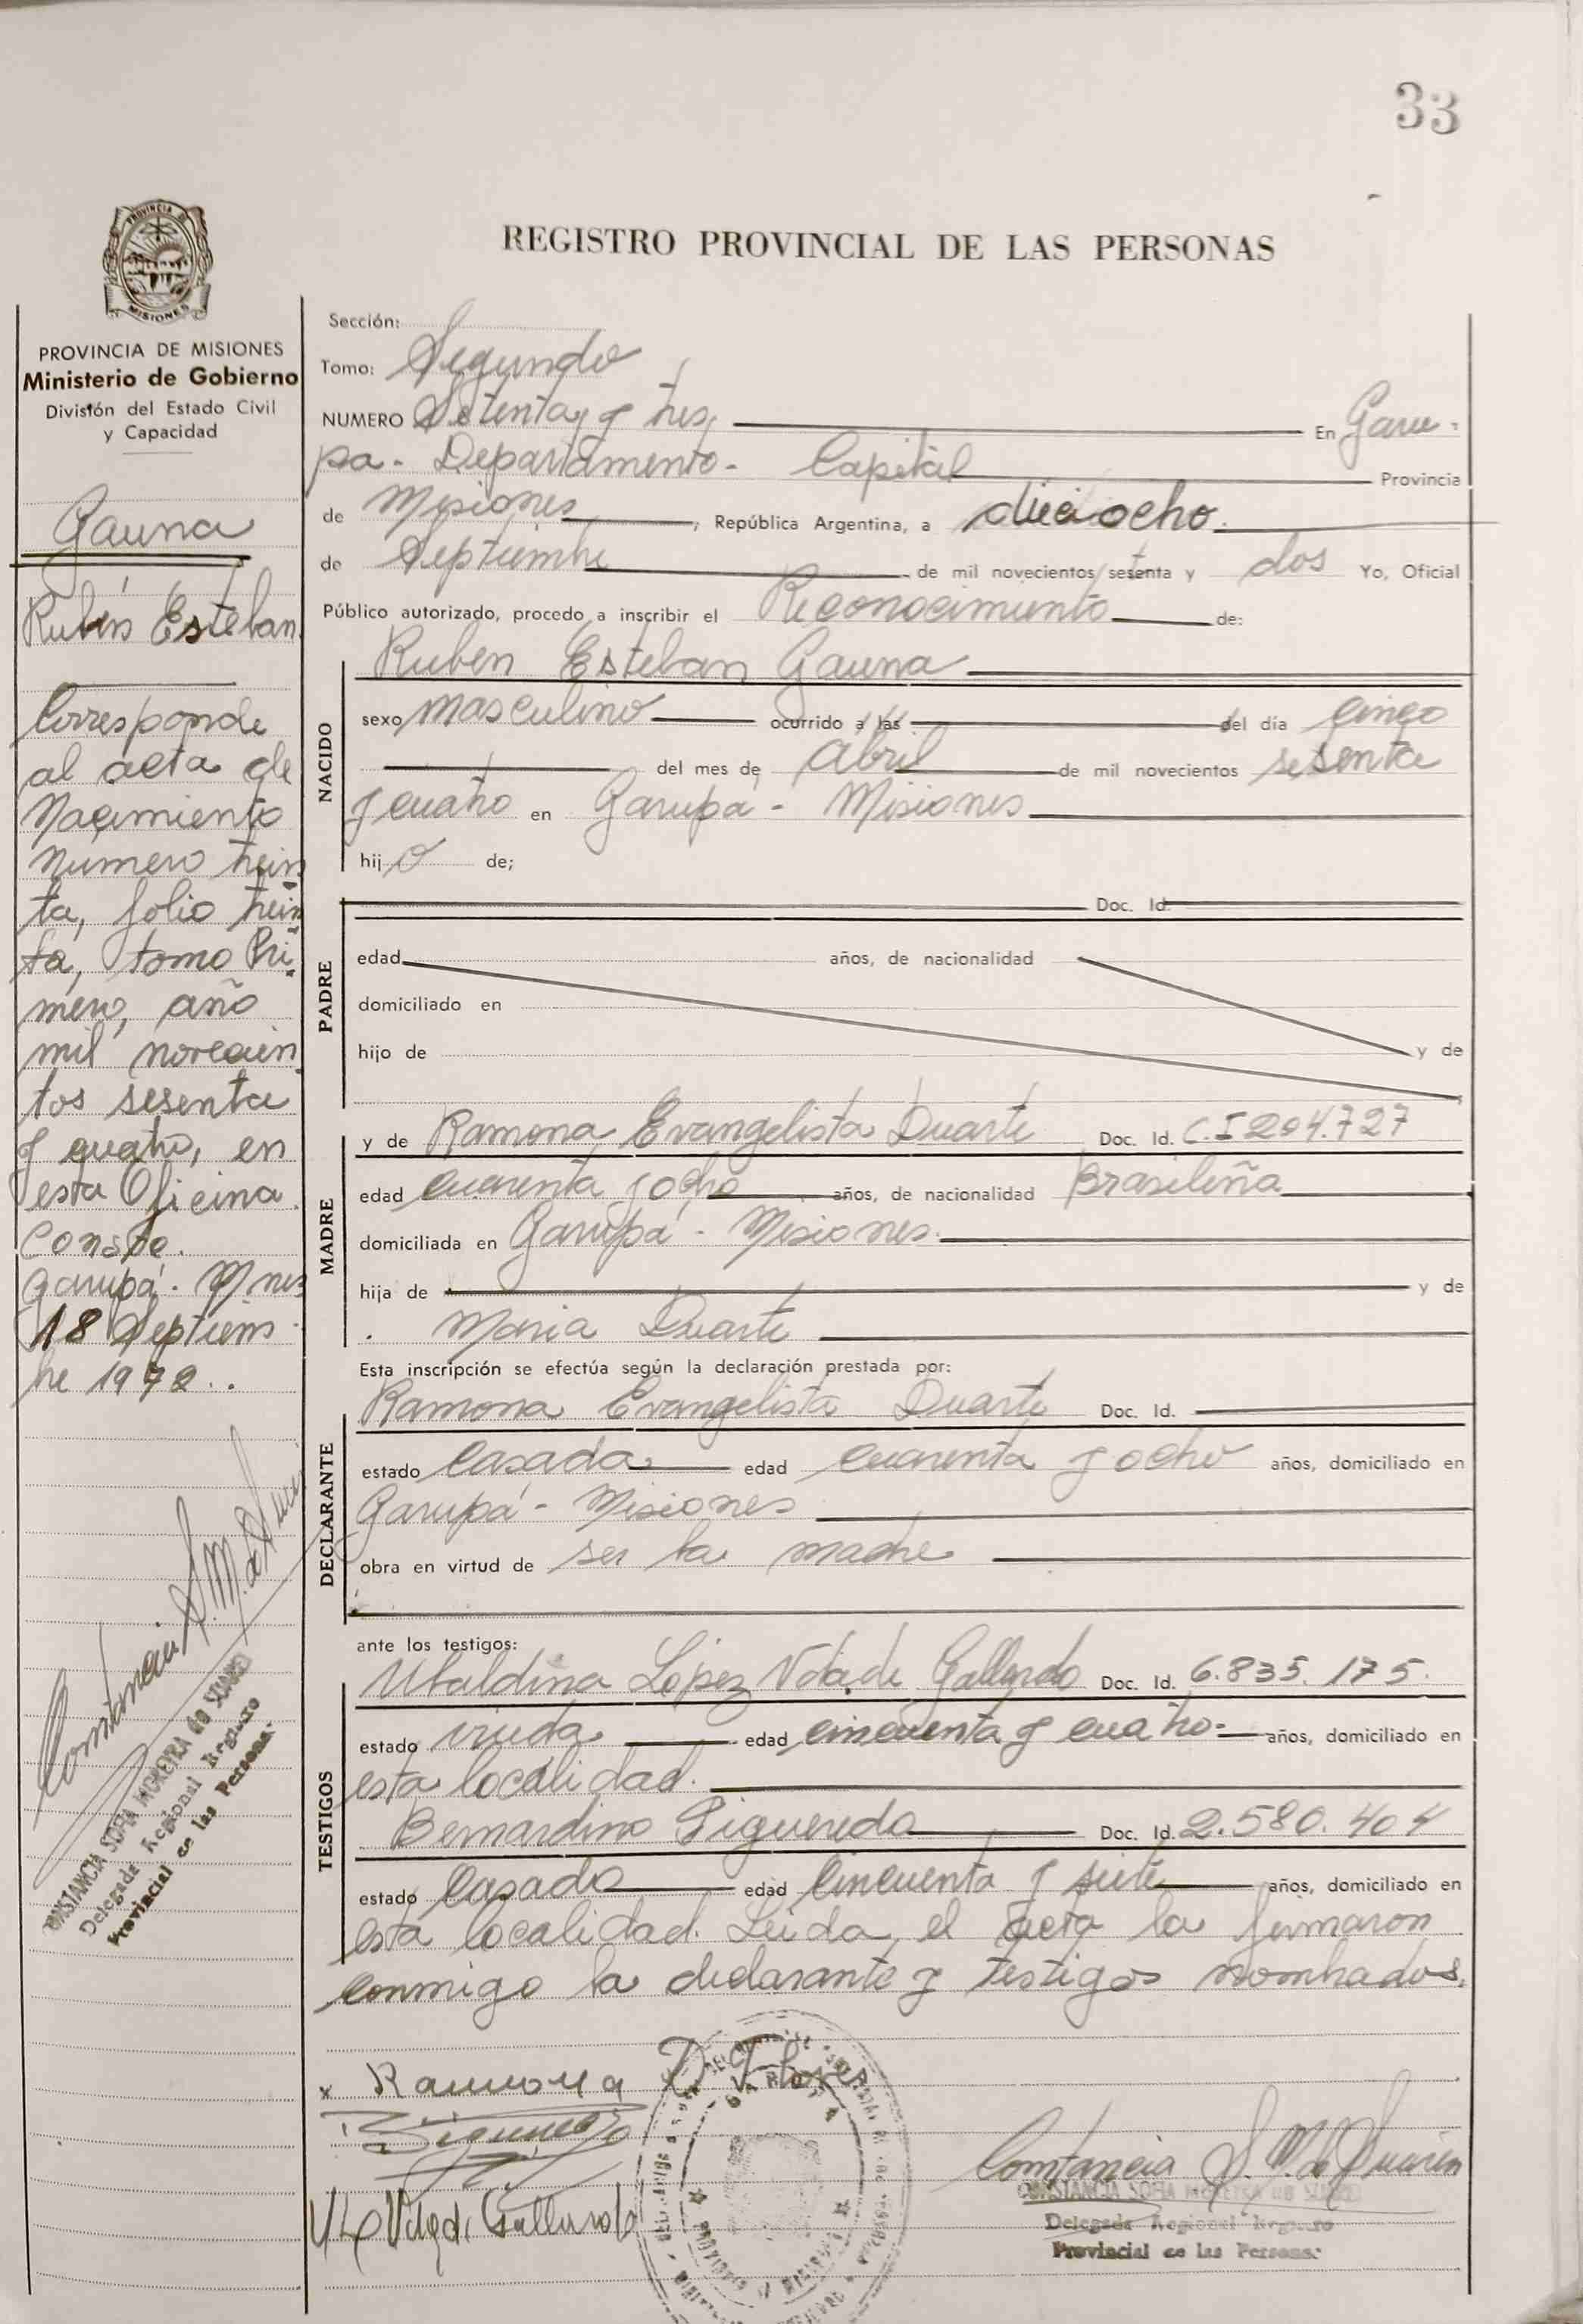 33
PROVINCIA DE
MISIONES
REGISTRO PROVINCIAL DE LAS PERSONAS
PROVINCIA DE MISIONES
Ministerio de Gobierno
División del Estado Civil
y Capacidad
Gauna
Rubén Esteban
Corresponde
al acta de
Nacimiento
número trein
ta, folio trein
ta, tomo Pri
mero, año
mil novecien
tos sesenta
y cuatro, en
esta Oficina.
Conste.
Garupá - Mnes
18 Septiem
bre 1972.
CONSTANCIA SOFIA MOREYRA de
Delegada Regional Registro
Provincial de las Personas
Sección:
Tomo: Segundo
NUMERO Setenta y tres, En Garu-
pa - Departamento - Capital Provincia
de Misiones, República Argentina, a dieciocho.
de Septiembre de mil novecientos setenta y dos Yo, Oficial
Público autorizado, procedo a inscribir el Reconocimiento de:
NACIDO
Ruben Esteban Gauna
sexo masculino ocurrido a las del día cinco
del mes de Abril de mil novecientos sesenta
y cuatro en Garupá - Misiones
hijo de;
PADRE
Doc. Id.
edad años, de nacionalidad
domiciliado en
hijo de y de
MADRE
y de Ramona Evangelista Duarte Doc. Id. C.I 204.727
edad cuarenta y ocho años, de nacionalidad Brasileña
domiciliada en Garupá - Misiones.
hija de y de
Maria Duarte
Esta inscripción se efectúa según la declaración prestada por:
DECLARANTE
Ramona Evangelista Duarte Doc. Id.
estado Casada edad cuarenta y ocho años, domiciliado en
Garupá - Misiones
obra en virtud de ser la madre
ante los testigos:
TESTIGOS
Ubaldina López Vda. de Gallardo Doc. Id. 6.835.175.
estado viuda edad cincuenta y cuatro- años, domiciliado en
esta localidad.
Bernardino Figueredo Doc. Id. 2.580.404
estado Casado edad Cincuenta y siete años, domiciliado en
esta localidad. Leida, el acta la firmaron
conmigo la declarante y testigos nombrados.
x Ramona D
V L Vda de Gallardo
Constancia S. M. de
CONSTANCIA SOFIA MOREYRA de
Delegada Regional Registro
Provincial de las Personas